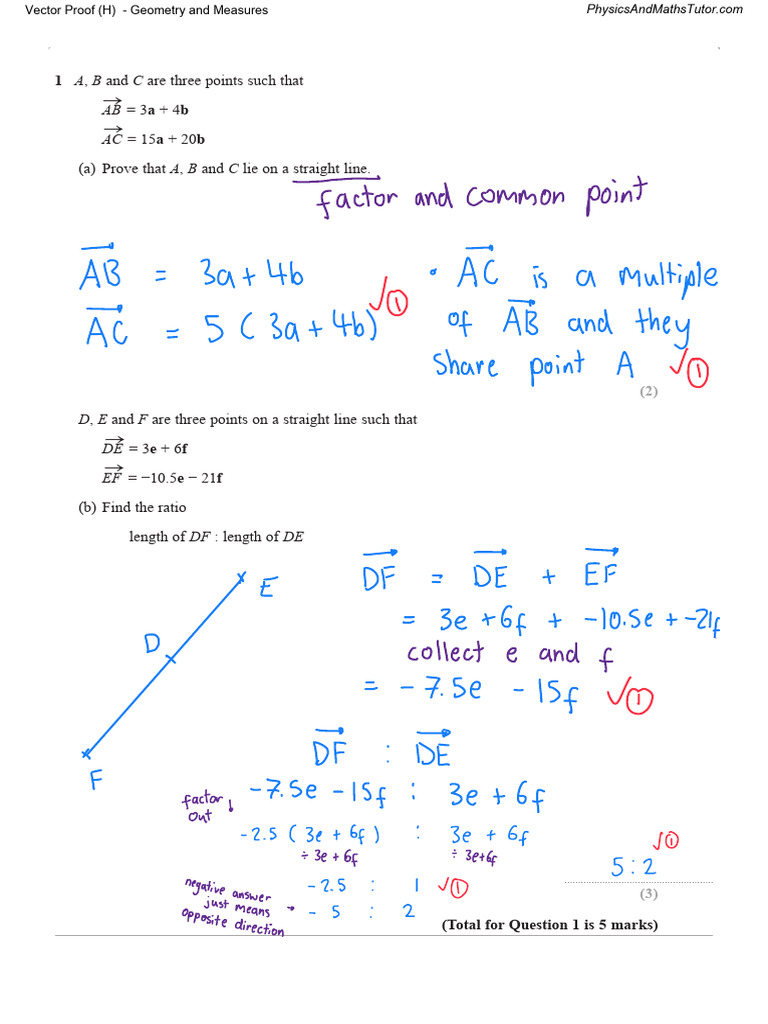 Vector Proof (H)  - Geometry and Measures
PhysicsAndMathsTutor.com
1 A, B and C are three points such that
AB = 3a + 4b
AC = 15a + 20b
(a) Prove that A, B and C lie on a straight line.
factor and common point
AB = 3a + 4b
AC = 5 ( 3a + 4b) ✓①
• AC is a multiple
of AB and they
share point A ✓①
(2)
D, E and F are three points on a straight line such that
DE = 3e + 6f
EF = −10.5e − 21f
(b) Find the ratio
length of DF : length of DE
E
D
F
DF = DE + EF
= 3e + 6f + -10.5e + -21f
collect e and f
= - 7.5e - 15f ✓①
DF : DE
-7.5e - 15f : 3e + 6f
factor ↓
out
-2.5 ( 3e + 6f ) : 3e + 6f
÷ 3e + 6f ÷ 3e+6f
- 2.5 : 1 ✓①
negative answer
just means → - 5 : 2
opposite direction
✓①
5 : 2
(3)
(Total for Question 1 is 5 marks)